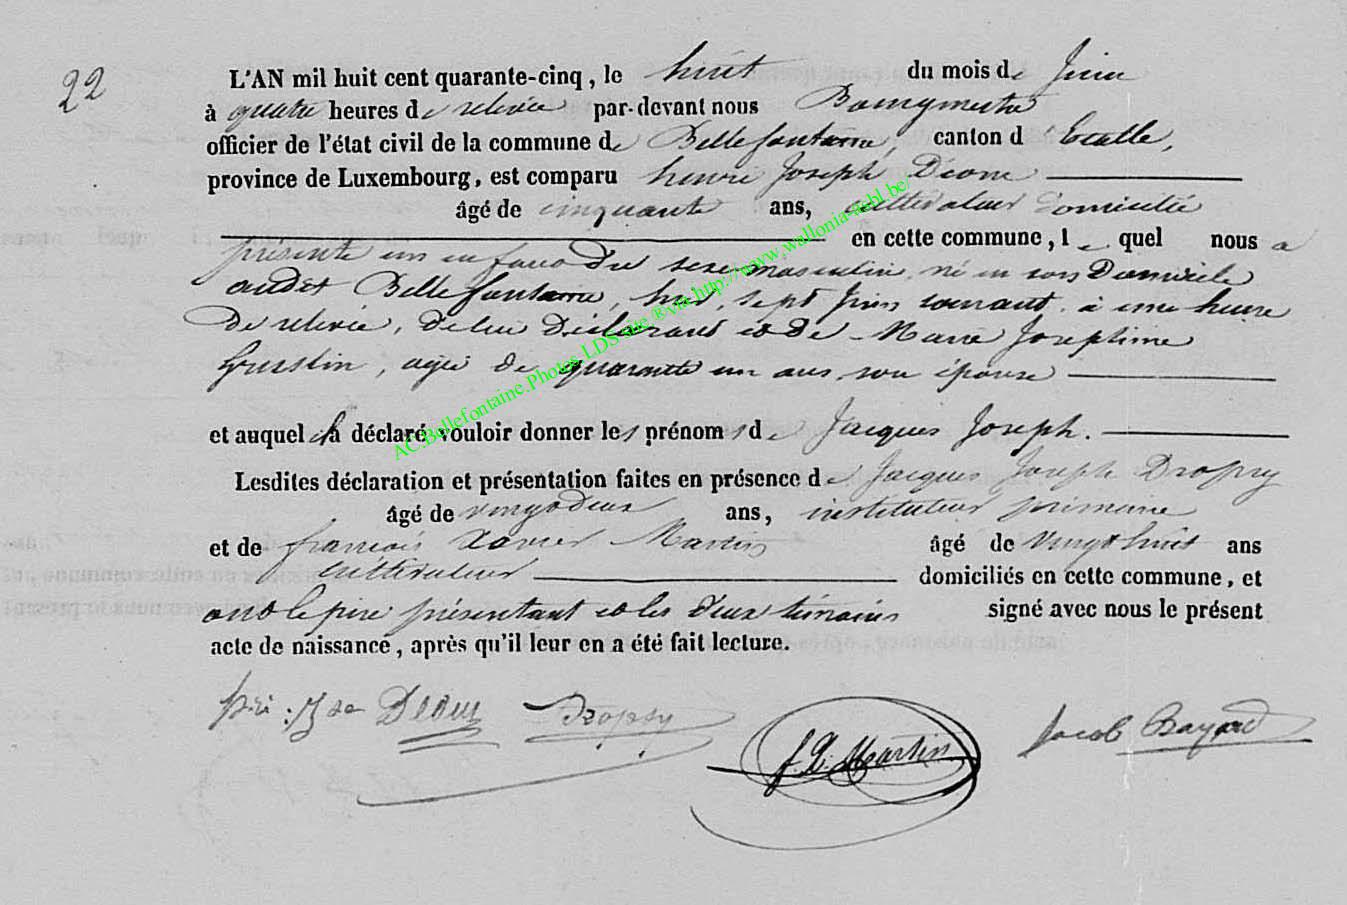 22
L'AN mil huit cent quarante-cinq, le huit du mois de Juin
à quatre heures de relevée par-devant nous Bourgmestre
officier de l'état civil de la commune de Bellefontaine, canton d'Etalle,
province de Luxembourg, est comparu henri Joseph Déom
âgé de cinquante ans, cultivateur domicilié
en cette commune, lequel nous a
présenté un enfant du sexe masculin, né en son Domicile
audit Bellefontaine, hier, sept Juin courant, à une heure
De relevée, de lui Déclarant et de Marie Joséphine
âgée de quarante un ans, son épouse
et auquel il a déclaré vouloir donner les prénoms de Jacques Joseph.
Lesdites déclaration et présentation faites en présence de Jacques Joseph Dropsy
âgé de vingt deux ans, instituteur primaire
et de françois Xavier Martin âgé de vingt huit ans
cultivateur domiciliés en cette commune, et
ont le père présentant et les deux témoins signé avec nous le présent
acte de naissance, après qu'il leur en a été fait lecture.
Déom Dropsy f. X. Martin Jacob Bayard
AC.Bellefontaine.Photos LDS sur ®via http://www.wallonia-asbl.be/